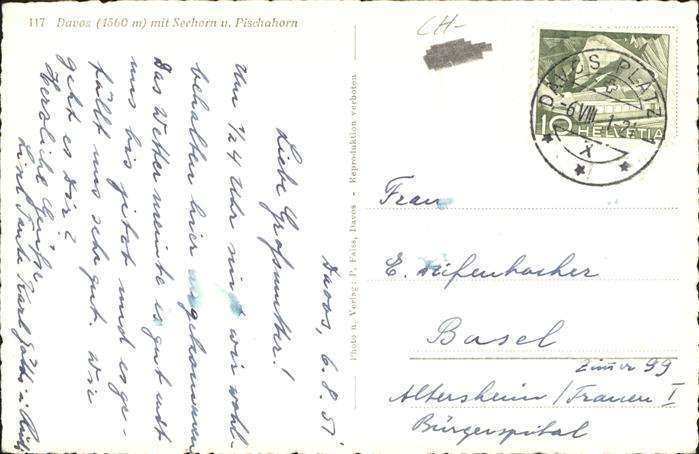 117 Davos (1560 m) mit Seehorn u. Pischahorn
Davos, 6.8.51
Liebe Großmutter!
Um ½4 Uhr sind wir wohl-
behalten hier angekommen
Das Wetter meinte es gut mit
uns bis jetzt und es ge-
fällt uns sehr gut. Wie
geht es Dir?
Herzliche Grüße
Tante Karl
Photo u. Verlag: P. Faiss, Davos - Reproduktion verboten
CH-
DAVOS PLATZ
-6.VIII.
X
10 HELVETIA
Frau
E. Diefenbacher
Basel
Zimmer 99
Altersheim/Frauen I
Bürgerspital